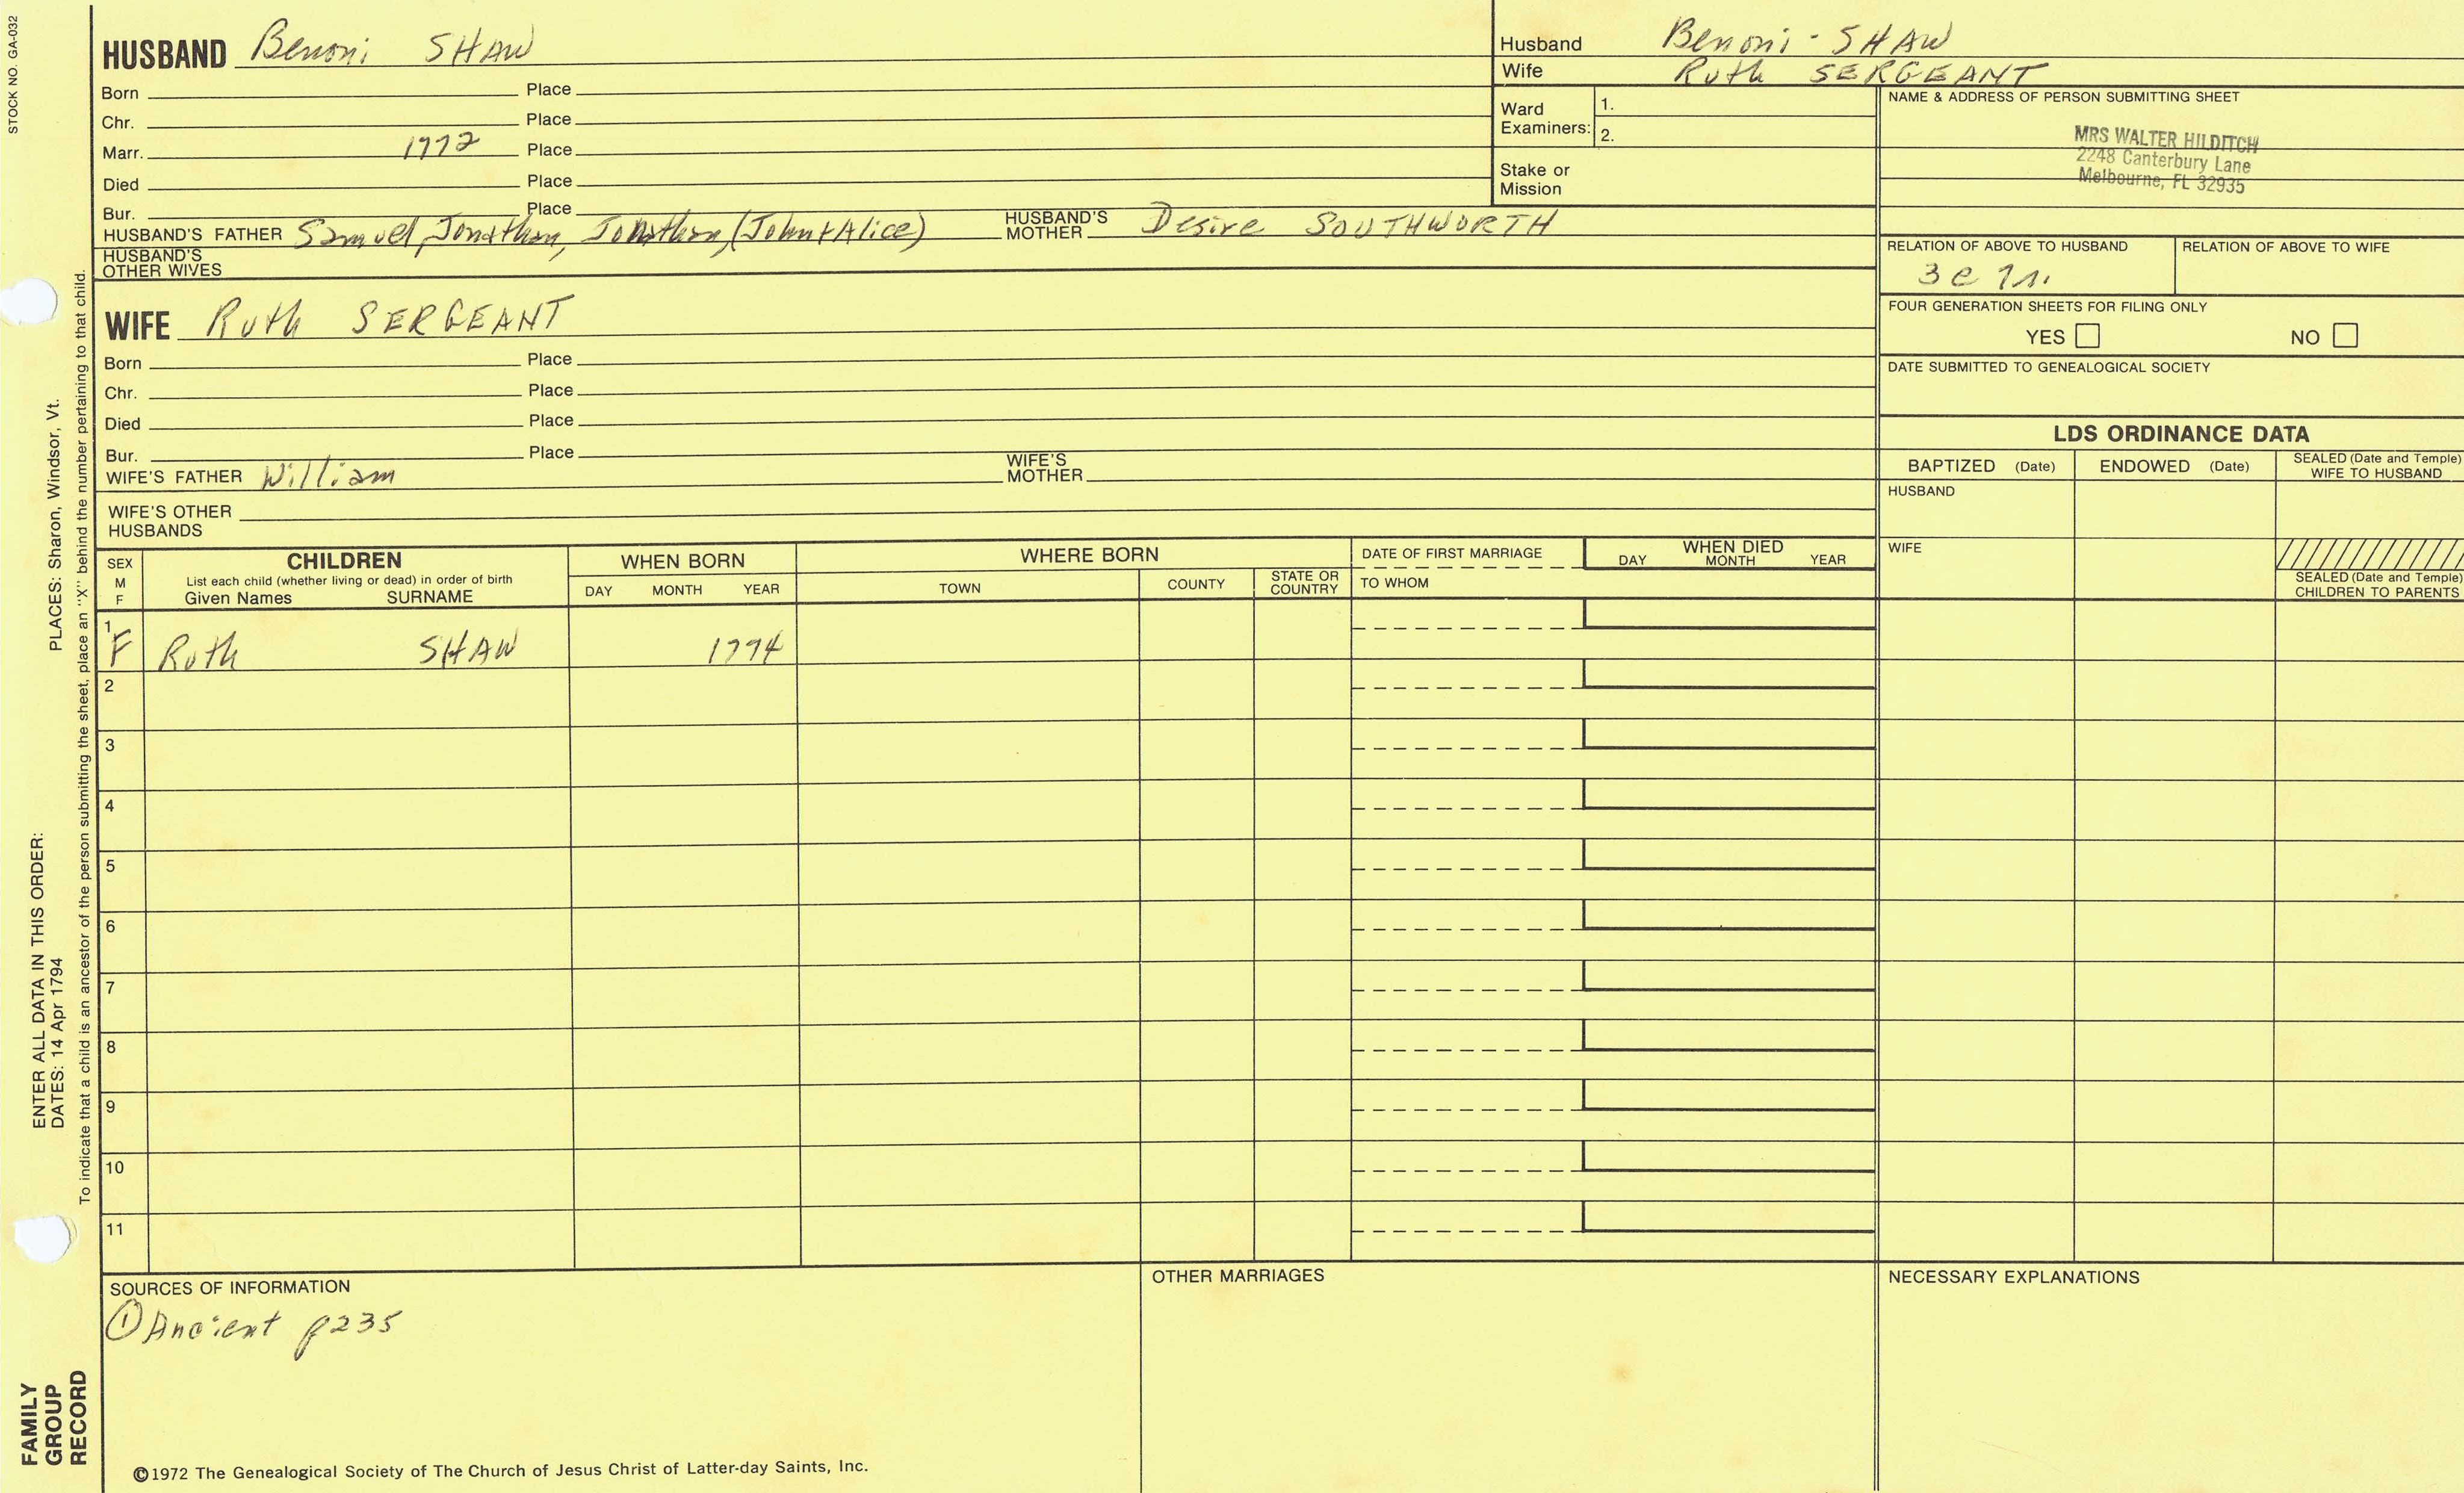 STOCK NO. GA-032
HUSBAND Benoni SHAW
Born Place
Chr. Place
Marr. 1772 Place
Died Place
Bur. Place
HUSBAND'S FATHER Samuel, Jonathan, Jonathan, (John + Alice) HUSBAND'S MOTHER Desire SOUTHWORTH
HUSBAND'S OTHER WIVES
WIFE Ruth SERGEANT
Born Place
Chr. Place
Died Place
Bur. Place
WIFE'S FATHER William WIFE'S MOTHER
WIFE'S OTHER HUSBANDS
Husband Benoni - SHAW
Wife Ruth SERGEANT
Ward Examiners: 1.
2.
Stake or Mission
NAME & ADDRESS OF PERSON SUBMITTING SHEET
MRS WALTER HILDITCH
2248 Canterbury Lane
Melbourne, FL 32935
RELATION OF ABOVE TO HUSBAND RELATION OF ABOVE TO WIFE
3 c 7 r.
FOUR GENERATION SHEETS FOR FILING ONLY
YES NO
DATE SUBMITTED TO GENEALOGICAL SOCIETY
LDS ORDINANCE DATA
BAPTIZED (Date) ENDOWED (Date) SEALED (Date and Temple) WIFE TO HUSBAND
HUSBAND
WIFE
SEALED (Date and Temple) CHILDREN TO PARENTS
SEX M F
CHILDREN
List each child (whether living or dead) in order of birth
Given Names SURNAME
WHEN BORN
DAY MONTH YEAR
WHERE BORN
TOWN COUNTY STATE OR COUNTRY
DATE OF FIRST MARRIAGE
TO WHOM
WHEN DIED
DAY MONTH YEAR
1 F Ruth SHAW 1774
2
3
4
5
6
7
8
9
10
11
SOURCES OF INFORMATION
① Ancient p235
OTHER MARRIAGES
NECESSARY EXPLANATIONS
©1972 The Genealogical Society of The Church of Jesus Christ of Latter-day Saints, Inc.
FAMILY GROUP RECORD
ENTER ALL DATA IN THIS ORDER:
DATES: 14 Apr 1794 PLACES: Sharon, Windsor, Vt.
To indicate that a child is an ancestor of the person submitting the sheet, place an "X" behind the number pertaining to that child.